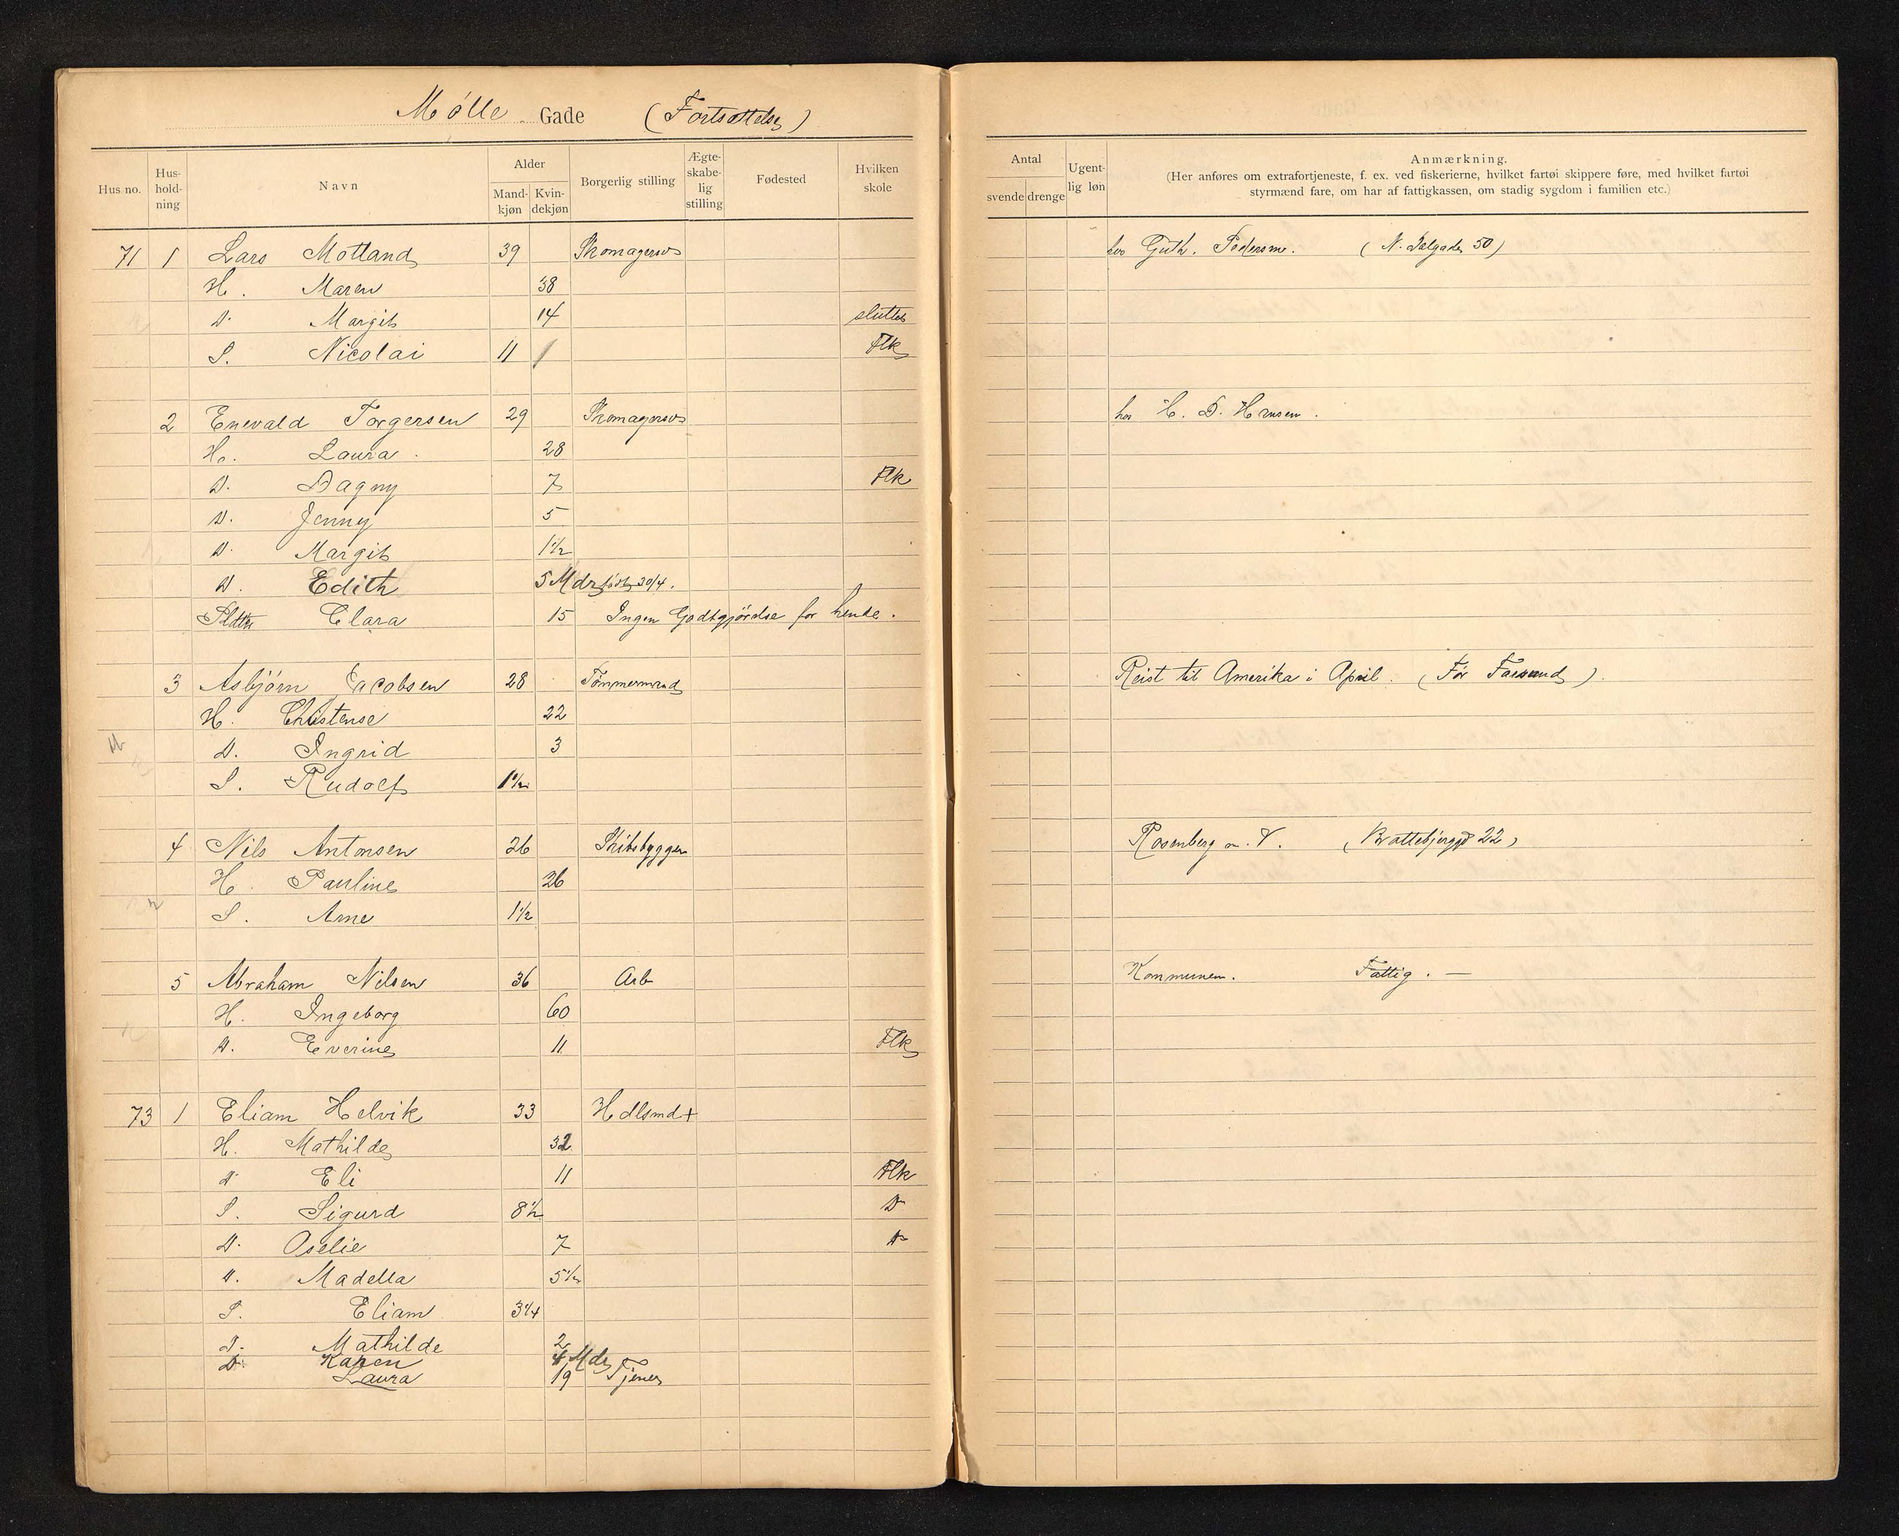 Mølle Gade (Fortsættelse)
Hus no. Hus-hold-ning Navn Alder Mand-kjøn Kvin-dekjøn Borgerlig stilling Ægte-skabe-lig stilling Fødested Hvilken skole
Antal svende drenge Ugent-lig løn Anmærkning.
(Her anføres om extrafortjeneste, f. ex. ved fiskerierne, hvilket fartøi skippere føre, med hvilket fartøi
styrmænd fare, om har af fattigkassen, om stadig sygdom i familien etc.)
71 1 Lars Motland 39 Skomagersv hos Guth. Pedersen. (N. Dalgade 50)
H. Maren 38
D. Margit 14 sluttet
S. Nicolai 11 Flk
2 Enevald Torgersen 29 Skomagersv hos H. D. Hansen.
H. Laura 28
D. Dagny 7 Flk
D. Jenny 5
D. Margit 1½
D. Edith 5 Mdr født 30/4.
Pldtr Clara 15 Ingen Godtgjørelse for hende.
3 Asbjørn Jacobsen 28 Tømmermand Reist til Amerika i April. (Før Farsund)
H. Christense 22
D. Ingrid 3
S. Rudolf 1½
4 Nils Antonsen 26 Skibsbygger Rosenberg m. V. (Brattebjerggd 22)
H. Pauline 26
S. Arne 1½
5 Abraham Nilsen 36 Arb Kommunen. Fattig. —
H. Ingeborg 60
D. Everine 11 Flk
73 1 Eliam Helvik 33 Hdlsmd +
H. Mathilde 32
D Eli 11 Flk
S. Sigurd 8½ D
D. Oselie 7 D
D. Madella 5½
S. Eliam 3¼
D. Mathilde 2
D. Karen 4 Mdr
Laura 19 Tjener